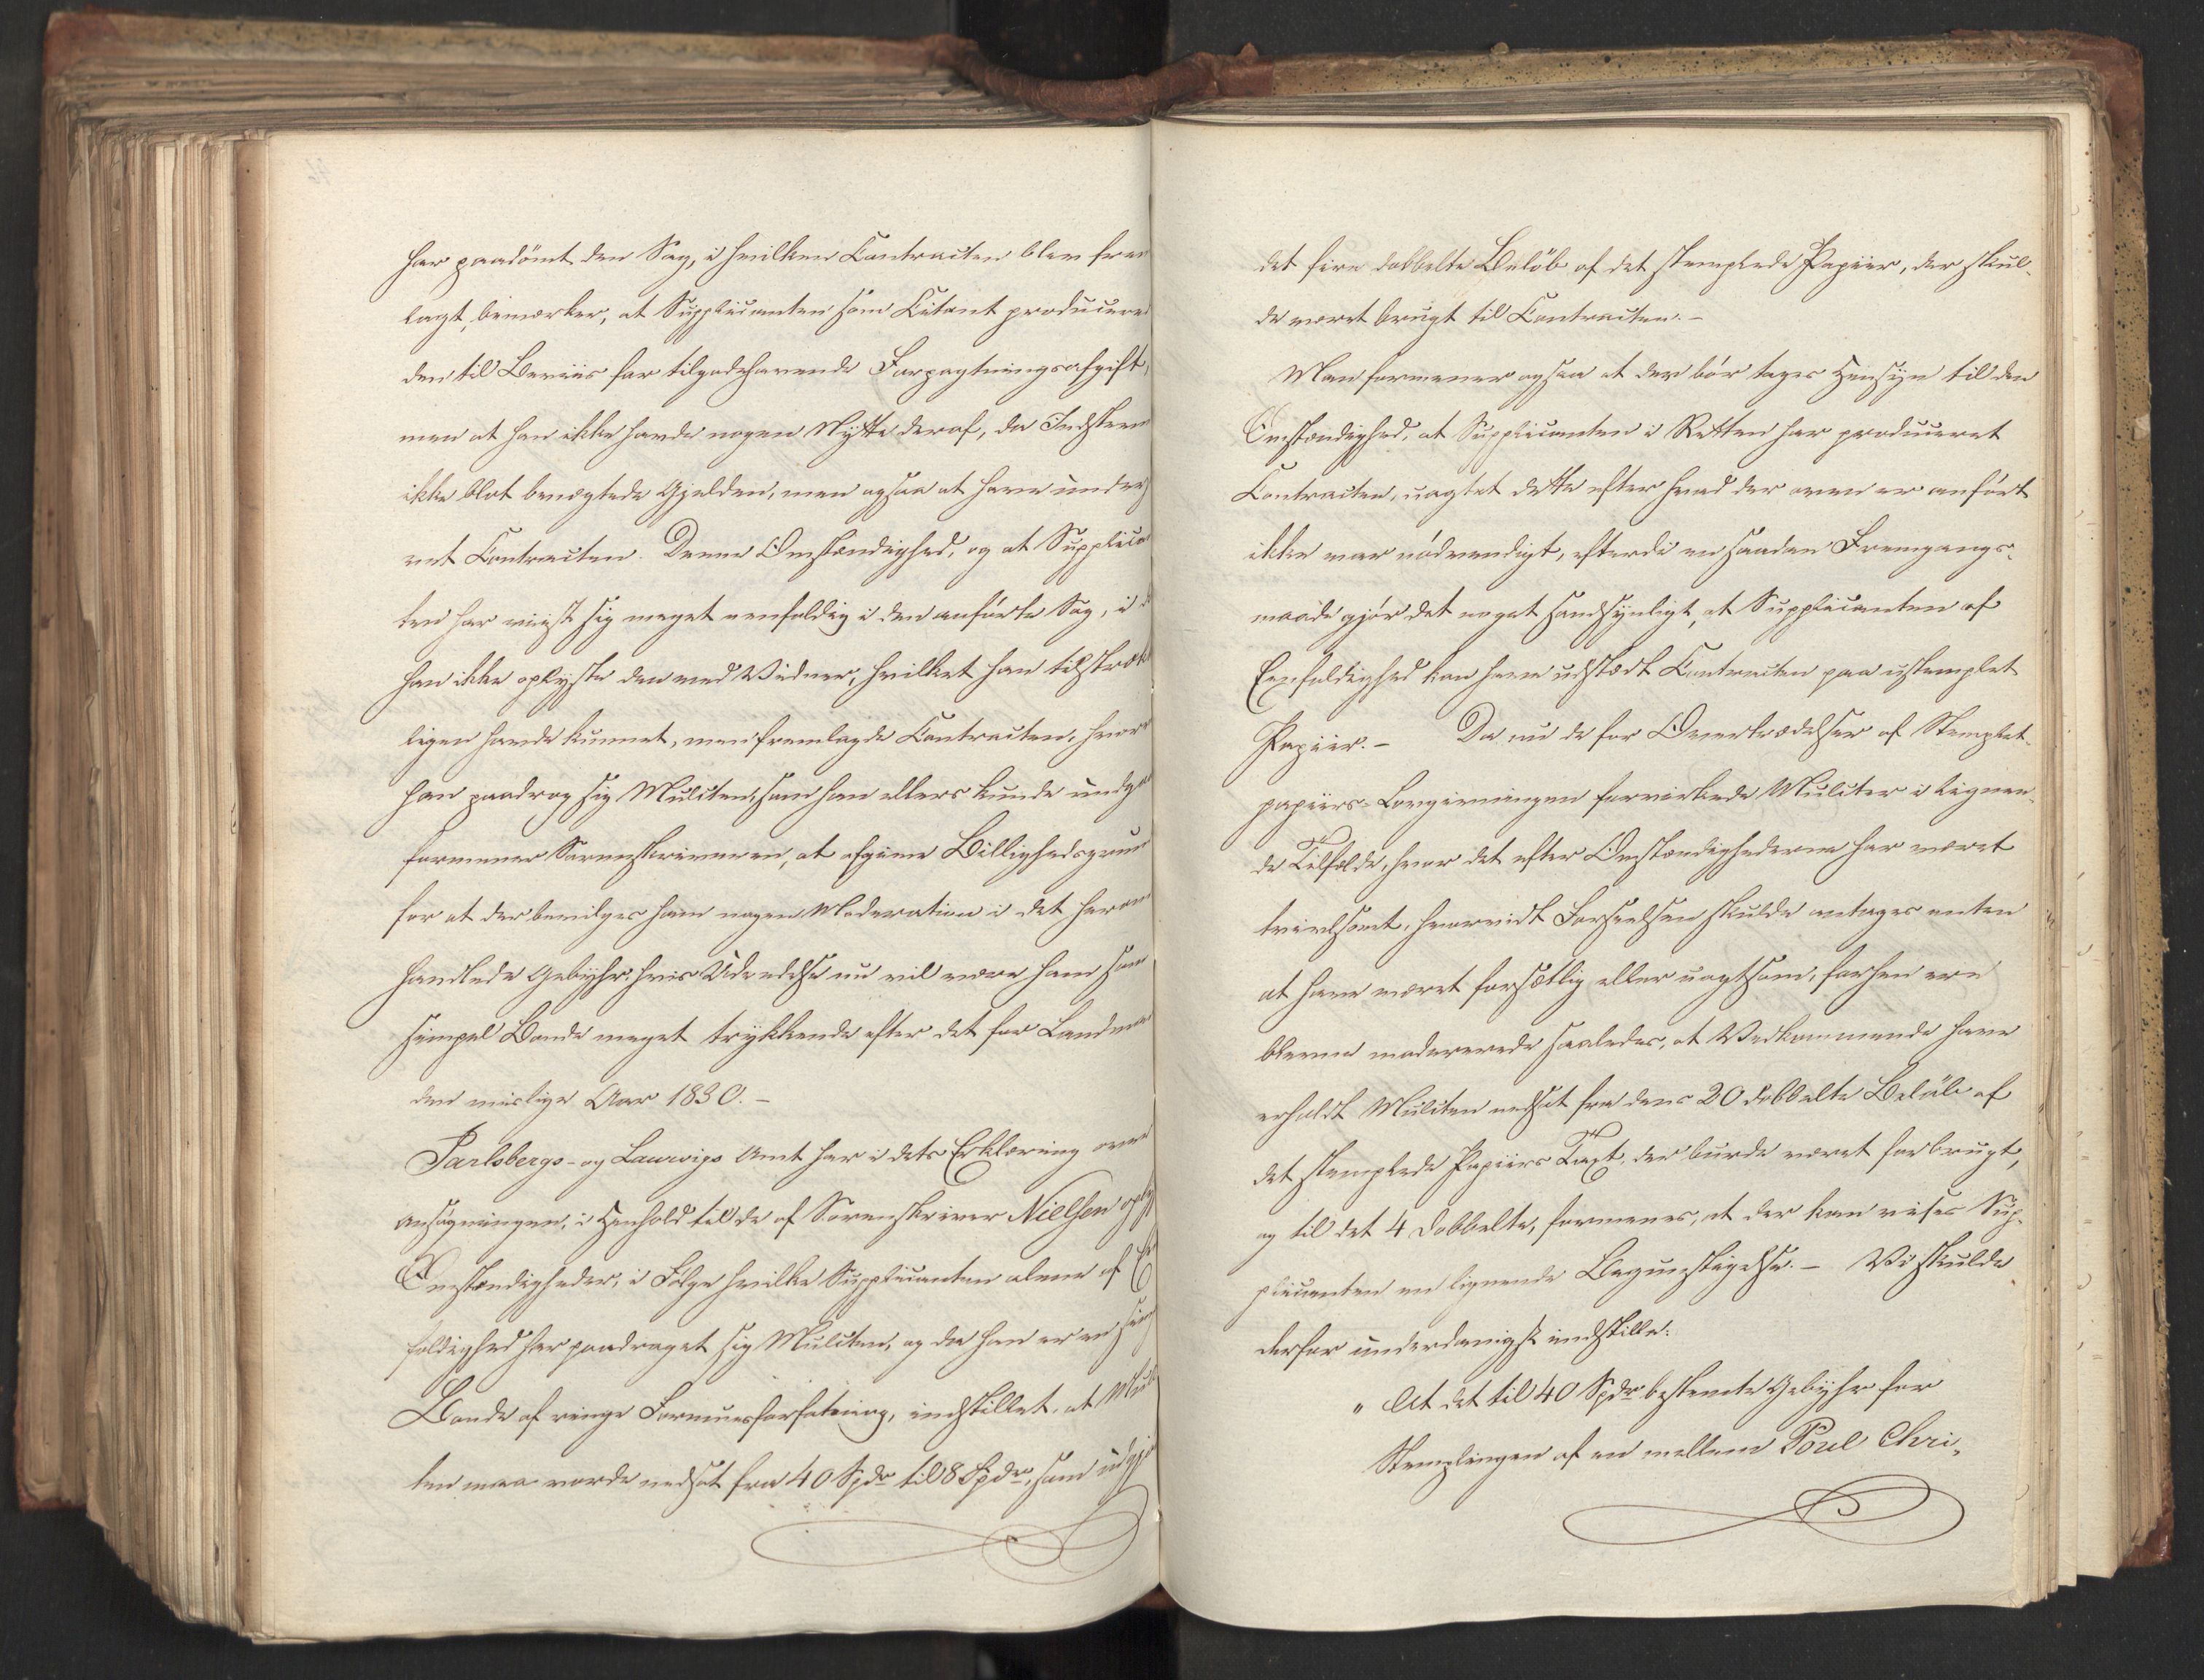 har paadömt den Sag, i hvilken Contracten blev frem
lagt, bemærker, at Supplicanten som Citant producered
den til Beviis for tilgodehavende Forpagtningsafgift,
men at han ikke havde nogen Nytte deraf, da Indstevn
ikke blot benegtede Gjelden, men ogsaa at have undersk
vet Contracten. Denne Omstændighed, og at Supplica
ten har viist sig meget eenfoldig i den anförte Sag, i d
han ikke oplyste den med Vidner, hvilket han tilstræk
ligen havde kunnet, men fremlagde Contracten, hvor
han paadrog sig Mulcten, som han ellers kunde undga
formener Sorenskriveren, at afgive Billighedsgrun
for at der bevilges ham nogen Moderation i det herom
handlede Gebyhr, hvis Udredelse nu vil være ham som
simpel Bonde meget trykkende efter det for Landma
den mislige Aar 1830.-
Jarlsbergs- og Laurvigs Amt har i dets Erklæring over
Ansögningen, i Henhold til de af Sorenskriver Nielsen oply
Omstændigheder, i Fölge hvilke Supplicanten alene af Een
foldighed har paadraget sig Mulcten, og da han er en simp
Bonde af ringe Formuesforfatning, indstillet, at Mulc
ten maa vorde nedsat fra 40 Spdr til 8 Spdr, som udgjö
det fire dobbelte Belöb af det stemplede Papiir, der skul-
de været brugt til Contracten.-
Man formener ogsaa at der bör tages Hensyn til den
Omstændighed, at Supplicanten i Retten har produceret
Contracten, uagtet dette efter hvad der oven er anfört
ikke var nödvendigt, efterdi en saadan Fremgangs-
maade gjör det noget sandsynligt, at Supplicanten af
Eenfoldighed kan have udstædt Contracten paa ustemplet
Papiir.- Da nu de for Overtrædelser af Stemplet-
papiirs-Lovgivningen forvirkede Mulcter i lignen-
de Tilfælde, hvor det efter Omstændighederne har været
tvivlsomt, hvorvidt Forseelsen skulde antages enten
at have været forsætlig eller uagtsom, forhen ere
blevne modererede saaledes, at Vedkommende have
erholdt Mulcten nedsat fra dens 20 dobbelte Belöb af
det stemplede Papiirs Taxt, der burde været forbrugt,
og til det 4 dobbelte, formenes, at der kan vises Sup-
plicanten en lignende Begunstigelse.- Vi skulde
derfor underdanigst indstille:
" At det til 40 Spdr bestemte Gebyhr for
Stemplingen af en mellem Poul Chri-